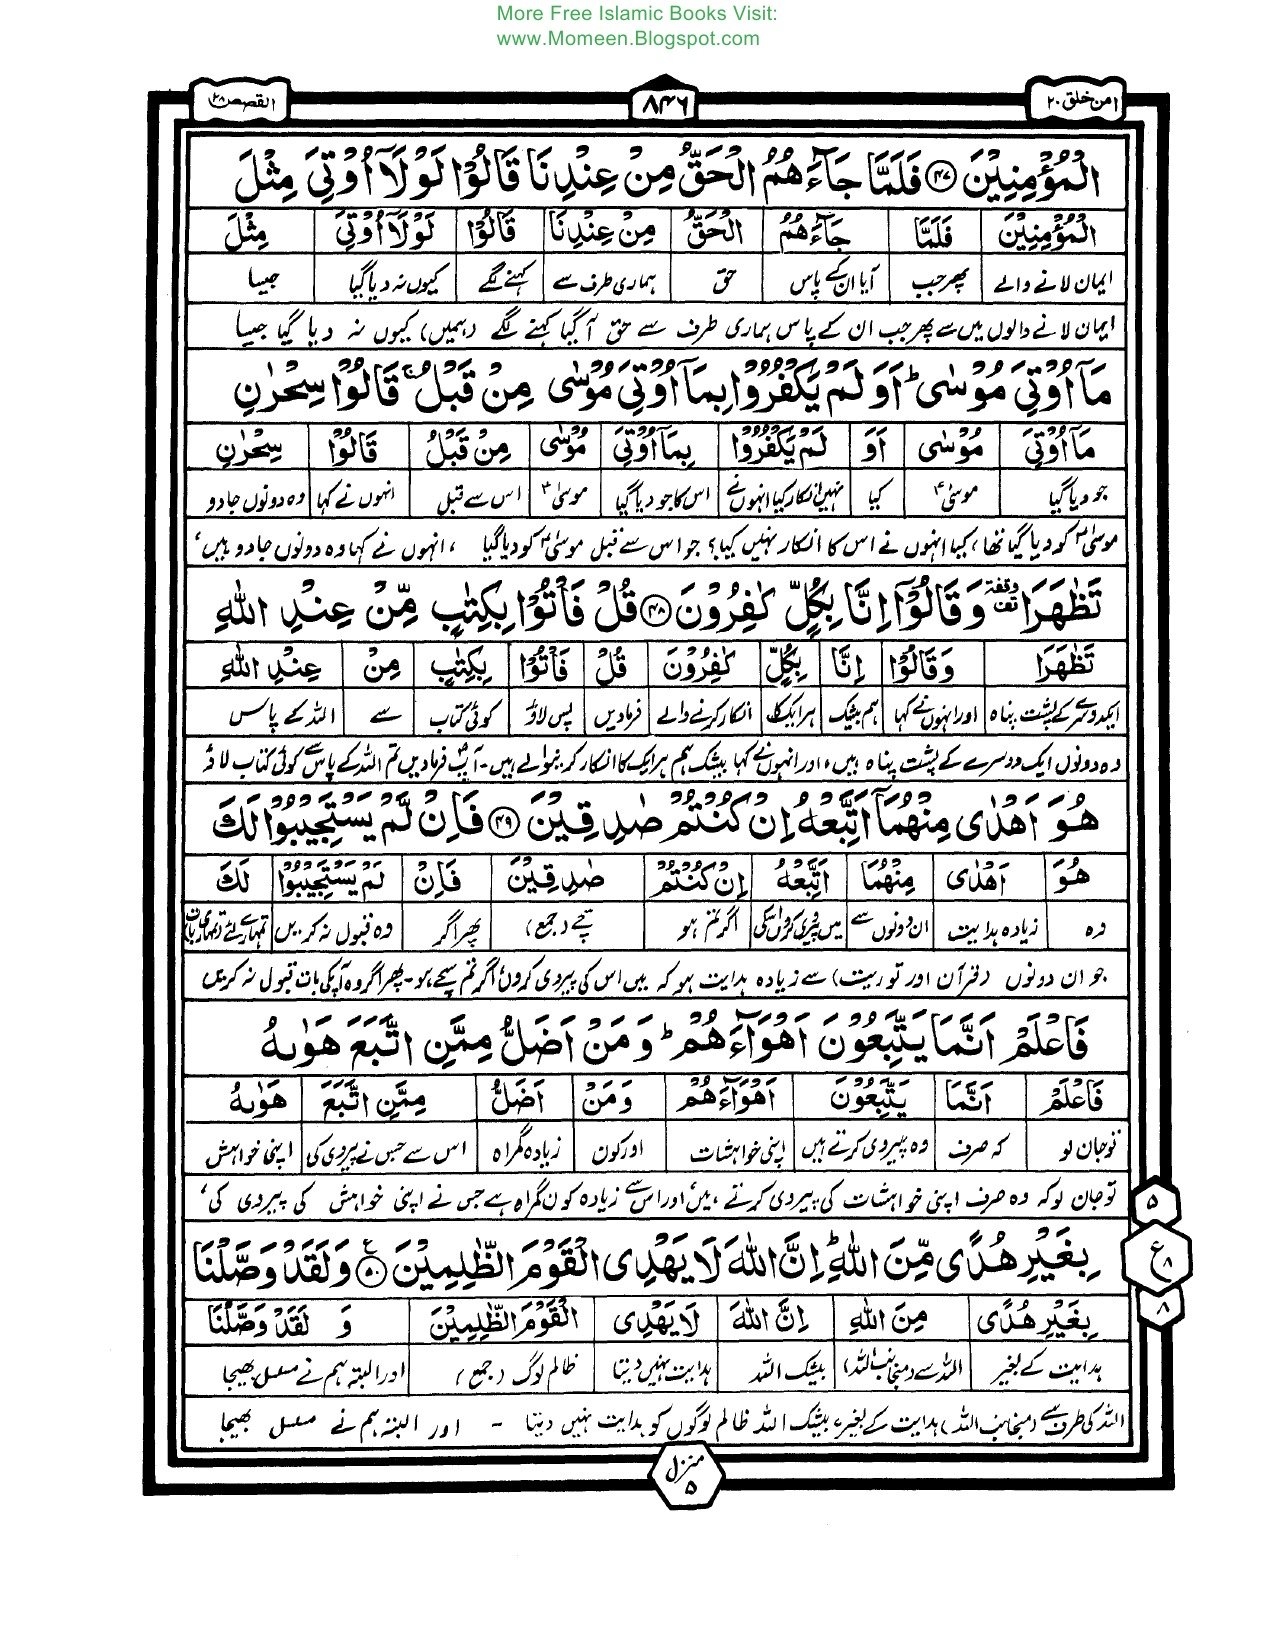 More Free Islamic Books Visit:
www.Momeen.Blogspot.com
امن خلق ۲۰
۸۴۶
القصص ۲۸
الْمُؤْمِنِيْنَ ﴿۴۷﴾ فَلَمَّا جَآءَهُمُ الْحَقُّ مِنْ عِنْدِنَا قَالُوْا لَوْلَآ اُوْتِيَ مِثْلَ
الْمُؤْمِنِيْنَ فَلَمَّا جَآءَهُمُ الْحَقُّ مِنْ عِنْدِنَا قَالُوْا لَوْلَآ اُوْتِيَ مِثْلَ
ایمان لانے والے پھر جب آیا ان کے پاس حق ہماری طرف سے کہنے لگے کیوں نہ دیا گیا جیسا
ایمان لانے والوں میں سے پھر جب ان کے پاس ہماری طرف سے حق آگیا کہنے لگے (ہمیں) کیوں نہ دیا گیا جیسا
مَآ اُوْتِيَ مُوْسٰى ؕ اَوَ لَمْ يَكْفُرُوْا بِمَآ اُوْتِيَ مُوْسٰى مِنْ قَبْلُ ۚ قَالُوْا سِحْرٰنِ
مَآ اُوْتِيَ مُوْسٰى اَوَ لَمْ يَكْفُرُوْا بِمَآ اُوْتِيَ مُوْسٰى مِنْ قَبْلُ قَالُوْا سِحْرٰنِ
جو دیا گیا موسیٰؑ کیا نہیں انکار کیا انہوں نے اس کا جو دیا گیا موسیٰؑ اس سے قبل انہوں نے کہا وہ دونوں جادو
موسیٰؑ کو دیا گیا تھا، کیا انہوں نے اس کا انکار نہیں کیا؟ جو اس سے قبل موسیٰؑ کو دیا گیا ، انہوں نے کہا وہ دونوں جادو ہیں،
تَظٰهَرَا وقفة وَقَالُوْٓا اِنَّا بِكُلٍّ كٰفِرُوْنَ ﴿۴۸﴾ قُلْ فَاْتُوْا بِكِتٰبٍ مِّنْ عِنْدِ اللّٰهِ
تَظٰهَرَا وَقَالُوْٓا اِنَّا بِكُلٍّ كٰفِرُوْنَ قُلْ فَاْتُوْا بِكِتٰبٍ مِنْ عِنْدِ اللّٰهِ
ایکدوسرے کے پشت پناہ اور انہوں نے کہا ہم بیشک ہر ایک کا انکار کرنے والے فرمادیں پس لاؤ کوئی کتاب سے اللہ کے پاس
وہ دونوں ایک دوسرے کے پشت پناہ ہیں، اور انہوں نے کہا بیشک ہم ہر ایک کا انکار کرنیوالے ہیں۔ آپؐ فرمادیں تم اللہ کے پاس سے کوئی کتاب لاؤ
هُوَ اَهْدٰى مِنْهُمَآ اَتَّبِعْهُ اِنْ كُنْتُمْ صٰدِقِيْنَ ﴿۴۹﴾ فَاِنْ لَّمْ يَسْتَجِيْبُوْا لَكَ
هُوَ اَهْدٰى مِنْهُمَا اَتَّبِعْهُ اِنْ كُنْتُمْ صٰدِقِيْنَ فَاِنْ لَمْ يَسْتَجِيْبُوْا لَكَ
وہ زیادہ ہدایت ان دونوں سے میں پیروی کروں اسکی اگر تم ہو سچے (جمع) پھر اگر وہ قبول نہ کریں تمہارے لئے (تمہاری بات)
جو ان دونوں (قرآن اور توریت) سے زیادہ ہدایت ہو کہ میں اس کی پیروی کروں اگر تم سچے ہو۔ پھر اگر وہ آپ کی بات قبول نہ کریں
فَاعْلَمْ اَنَّمَا يَتَّبِعُوْنَ اَهْوَآءَهُمْ ؕ وَمَنْ اَضَلُّ مِمَّنِ اتَّبَعَ هَوٰىهُ
فَاعْلَمْ اَنَّمَا يَتَّبِعُوْنَ اَهْوَآءَهُمْ وَمَنْ اَضَلُّ مِمَّنِ اتَّبَعَ هَوٰىهُ
تو جان لو کہ صرف وہ پیروی کرتے ہیں اپنی خواہشات اور کون زیادہ گمراہ اس سے جس نے پیروی کی اپنی خواہش
تو جان لو کہ وہ صرف اپنی خواہشات کی پیروی کرتے ہیں، اور اس سے زیادہ کون گمراہ ہے جس نے اپنی خواہش کی پیروی کی،
بِغَيْرِ هُدًى مِّنَ اللّٰهِ ؕ اِنَّ اللّٰهَ لَا يَهْدِى الْقَوْمَ الظّٰلِمِيْنَ ﴿۵۰﴾ ع وَلَقَدْ وَصَّلْنَا
بِغَيْرِ هُدًى مِنَ اللّٰهِ اِنَّ اللّٰهَ لَا يَهْدِى الْقَوْمَ الظّٰلِمِيْنَ وَ لَقَدْ وَصَّلْنَا
ہدایت کے بغیر اللہ سے (منجانب اللہ) بیشک اللہ ہدایت نہیں دیتا ظالم لوگ (جمع) اور البتہ ہم نے مسلسل بھیجا
اللہ کی طرف سے (منجانب اللہ) ہدایت کے بغیر، بیشک اللہ ظالم لوگوں کو ہدایت نہیں دیتا ۔ اور البتہ ہم نے مسلسل بھیجا
۵
ع ۸
۸
منزل ۵